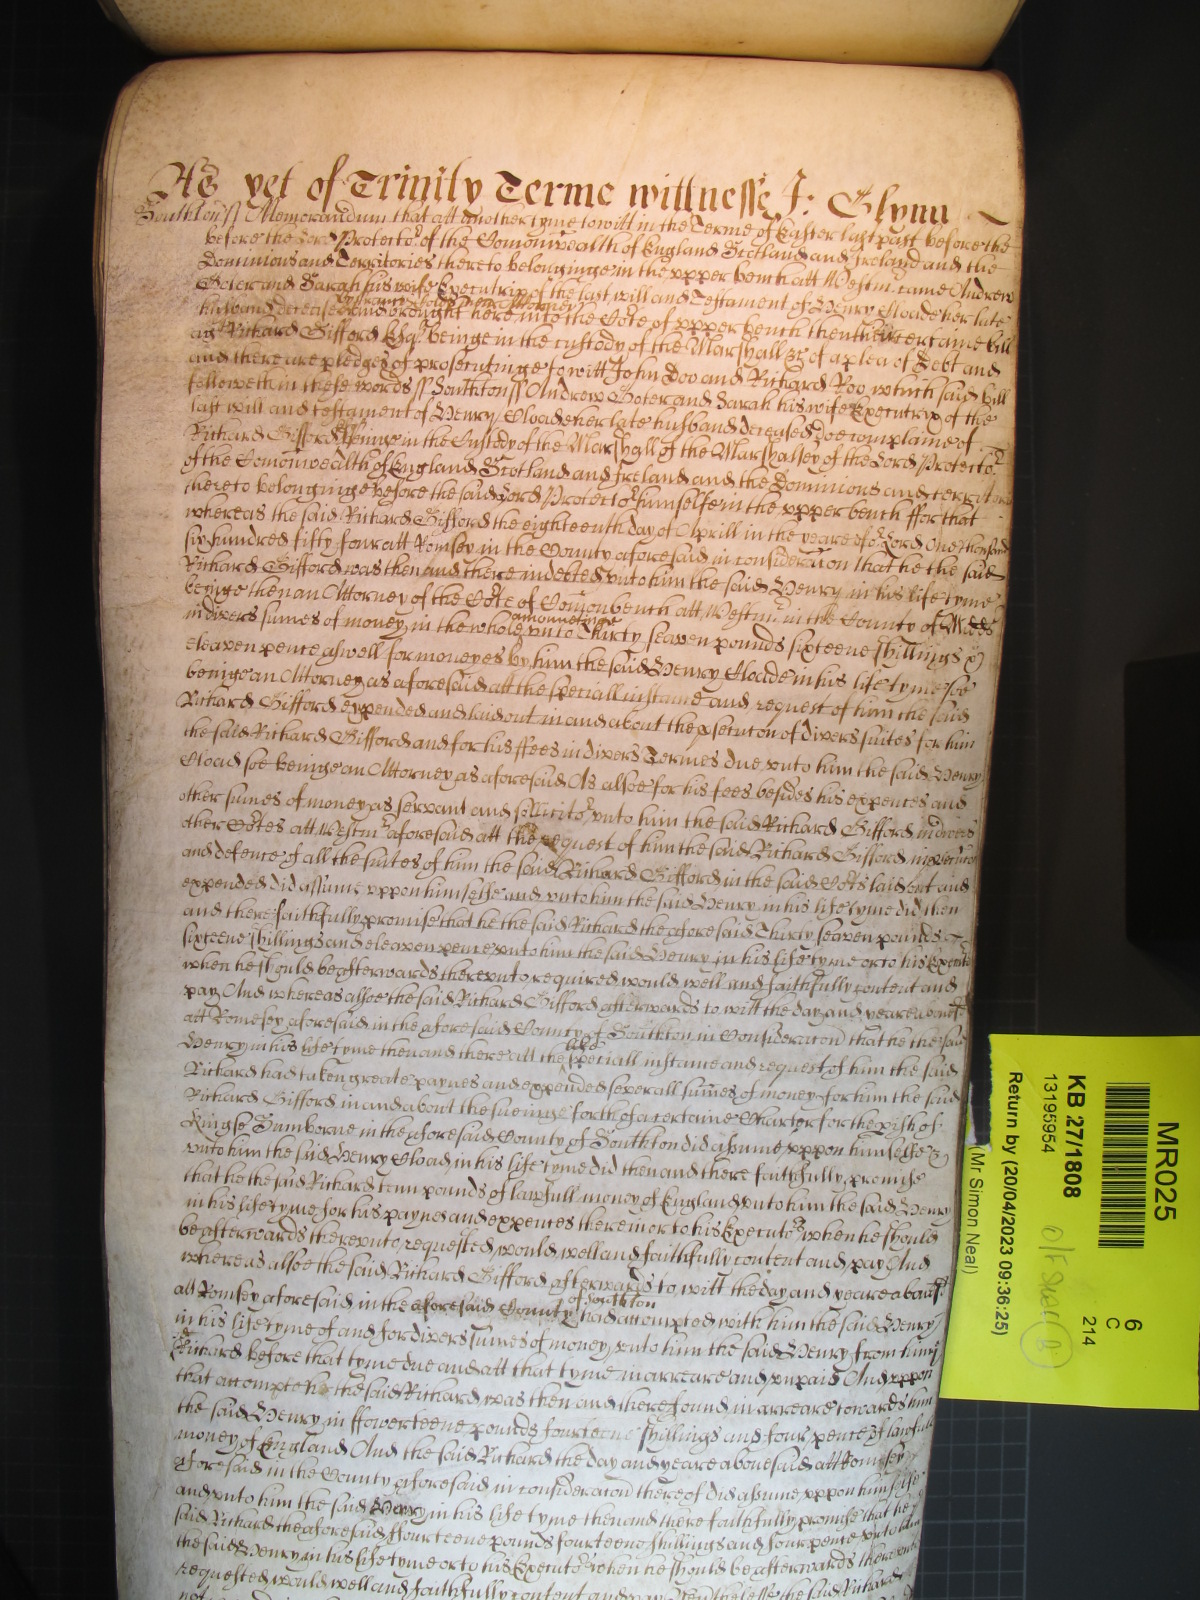 As yet of Trinity Terme wittnesse J: Glynn
Southton ss Memorandum that att another tyme to witt in the Terme of Easter last past before the
before the Lord Protector of the Comonwealth of England Scotland and Ireland and the
Dominions and Territories thereto belonginge in the upper bench att Westmr came Andrew
Goter and Sarah his wife Executrix of the last will and Testament of Henry Cloade her late
husband deceased and brought here into the Cort of upper bench then there a certaine bill
agt Richard Gifford Esqr beinge in the custody of the Marshall &c of a plea of Debt and
and there are pledges of prosecutinge to witt John Doo and Richard Roo which said bill
followeth in these words ss Southton ss Andrew Goter and Sarah his wife Executrix of the
last will and testament of Henry Cloade her late husband deceased doe complaine of
Richard Gifford Esqr beinge in the Custody of the Marshall of the Marshalsey of the Lord Protector
of the Comonwealth of England Scotland and Ireland and the Dominions and territories
thereto belonginge before the said Lord Protector himselfe in the upper bench ffor that
whereas the said Richard Gifford the eighteenth day of Aprill in the yeare of or Lord One thousand
six hundred fifty four att Romsey in the County aforesaid in consideracon that he the said
Richard Gifford was then and there indebted unto him the said Henry in his life tyme
beinge then an Attorney of the Cort of Comon bench att Westmr in the County of Midds
in divers sumes of money in the whole amountinge unto Thirty seaven pounds sixteene shillings &
eleaven pence aswell for moneyes by him the said Henry Cloade in his life tyme soe
beinge an Attorney as aforesaid att the speciall instance and request of him the said
Richard Gifford expended and laid out in and about the psecucon of divers suites for him
the said Richard Gifford and for his ffees in divers Termes due unto him the said Henry
Cload soe beinge an Attorney as aforesaid As alsoe for his fees besides his expences and
other sumes of money as servant and sollicitor unto him the said Richard Gifford in divers
other Corts att Westmr aforesaid att the request of him the said Richard Gifford in
and defence of all the suites of him the said Richard Gifford in the said Corts laid out and
expended did assume uppon himselfe and unto him the said Henry in his life tyme did then
and there faithfully promise that he the said Richard the aforesaid Thirty seaven pounds
sixteene shillings and eleaven pence unto him the said Henry in his life tyme or to his Executor
when he should be afterwards thereunto required would well and faithfully content and
pay And whereas alsoe the said Richard Gifford afterwards to witt the day and yeare
att Romesey aforesaid in the aforesaid County of Southton in Consideracon that he the said
Henry in his life tyme then and there att the like speciall instance and request of him the said
Richard had taken greate paynes and expended severall sumes of money for him the said
Richard Gifford in and about the sueinge forth of a certaine Charter for the pish of
Kingse Sumborne in the aforesaid County of Southton did assume uppon himselfe &
unto him the said Henry Cload in his life tyme did then and there faithfully promise
that he the said Richard tenn pounds of lawfull money of England unto him the said Henry
in his life tyme for his paynes and expences therein or to his Executor when he should
be afterwards thereunto requested would well and faithfully content and pay And
whereas alsoe the said Richard Gifford afterwards to witt the day and yeare
att Romsey aforesaid in the aforesaid County of Southton had accompted with him the said Henry
in his life tyme of and for divers sumes of money unto him the said Henry from him
Richard before that tyme due and att that tyme in arreare and unpaid And uppon
that accompte he the said Richard was then and there found in arreare towards him
the said Henry in ffowerteene pounds fourteene shillings and four pence of lawfull
money of England And the said Richard the day and yeare abovesaid att Romsey
aforesaid in the County aforesaid in consideracon thereof did assume uppon himselfe
and unto him the said Henry in his life tyme then and there faithfully promise that he
said Richard the aforesaid ffourteene pounds fourteene shillings and four pence unto him
the said Henry in his life tyme or to his Executor when he should be afterwards thereunto
requested would well and faithfully content and pay the said Richard
MR025
KB 27/1808
13195954
Return by (20/04/2023 09:36:25)
(Mr Simon Neal)
6
C
214